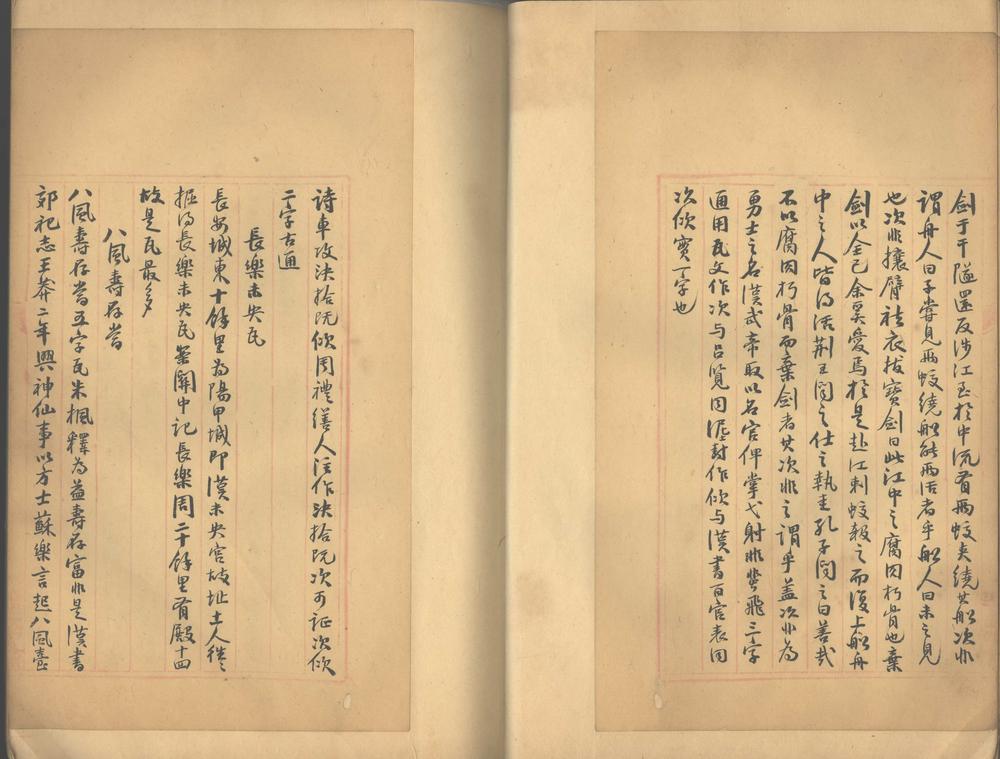 劍于干隧還反涉江至於中流有兩蛟夾繞其船次非
謂舟人曰子嘗見兩蛟繞船能兩活者乎船人曰未之見
也次非攘臂袪衣拔寶劍曰此江中之腐肉朽骨也棄
劍以全己余奚愛焉於是赴江刺蛟殺之而復上船舟
中之人皆得活荆王聞之仕之執圭孔子聞之曰善哉
不以腐肉朽骨而棄劍者其次非之謂乎蓋次非為
勇士之名漢武帝取以名官俾掌弋射非蜚飛三字
通用瓦文作次与吕覽同泥封作佽与漢書百官表同
次佽實一字也
詩車攻決拾既佽周禮繕人注作決拾既次可証次佽
二字古通
長樂未央瓦
長安城東十餘里為陽甲城即漢未央宫故址土人往々
掘得長樂未央瓦案關中記長樂周二十餘里有殿十四
故是瓦最多
八風壽存當
八風壽存當五字瓦朱楓釋為益壽存富非是漢書
郊祀志王莽二年興神仙事以方士蘇樂言起八風臺